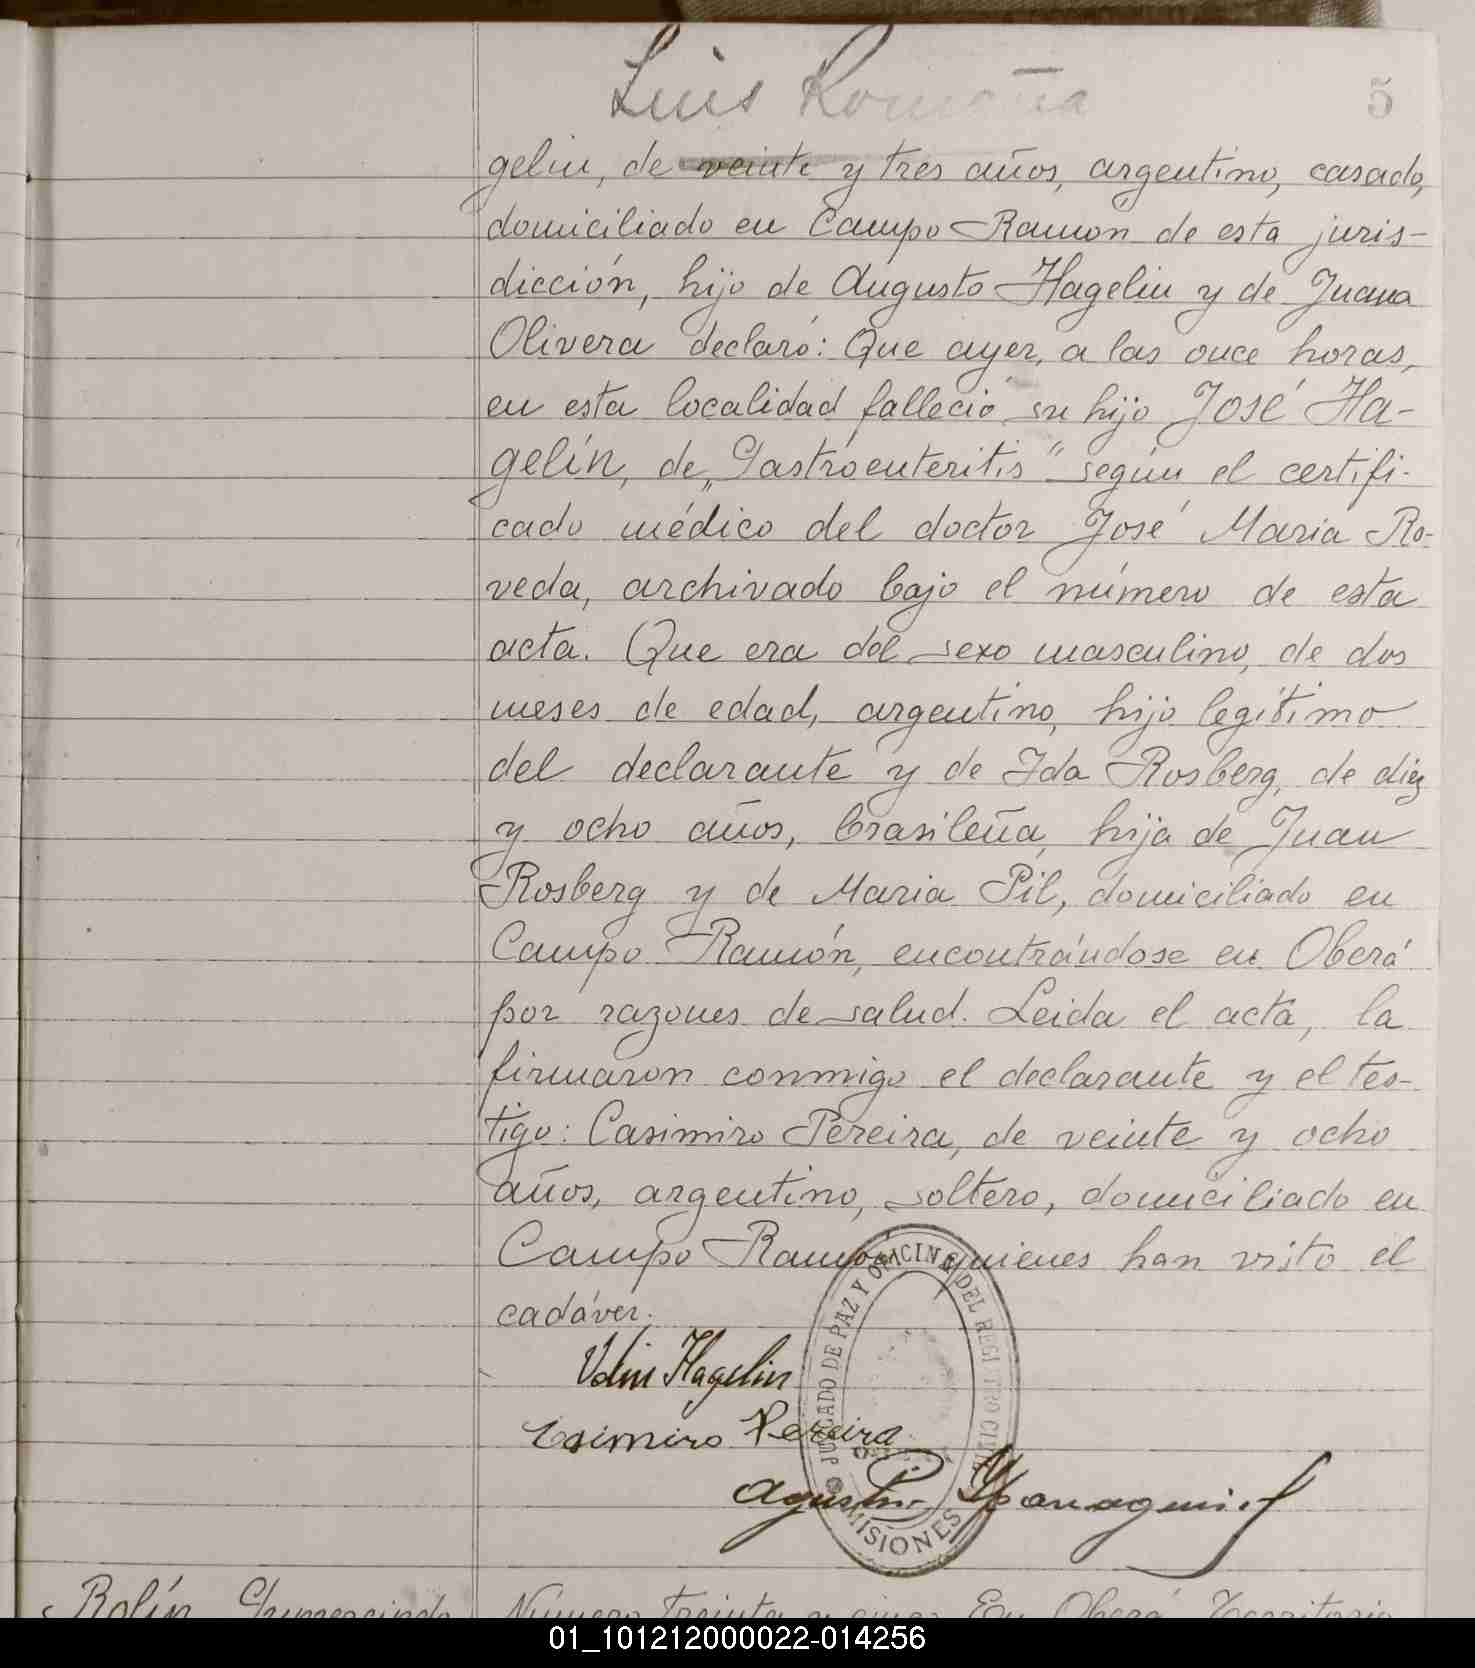 Luis Romaña
5
gelin, de veinte y tres años, argentino, casado,
domiciliado en Campo Ramón de esta juris-
dicción, hijo de Augusto Hagelin y de Juana
Olivera declaró: Que ayer, a las once horas,
en esta localidad falleció su hijo José Ha-
gelín, de „Gastroenteritis" según el certifi-
cado médico del doctor José Maria Ro-
veda, archivado bajo el número de esta
acta. Que era del sexo masculino, de dos
meses de edad, argentino, hijo legítimo
del declarante y de Ida Rosberg, de diez
y ocho años, brasileña, hija de Juan
Rosberg y de Maria Pil, domiciliado en
Campo Ramón, encontrándose en Oberá
por razones de salud. Leida el acta, la
firmaron conmigo el declarante y el tes-
tigo: Casimiro Pereira, de veinte y ocho
años, argentino, soltero, domiciliado en
Campo Ramón quienes han visto el
cadáver.
Hagelin
Casimiro Pereira
Agustin
JUZGADO DE PAZ Y OFICINA DEL REGISTRO CIVIL
MISIONES
Rolín Gumersindo
Número treinta y cinco En Oberá Territorio
01_101212000022-014256